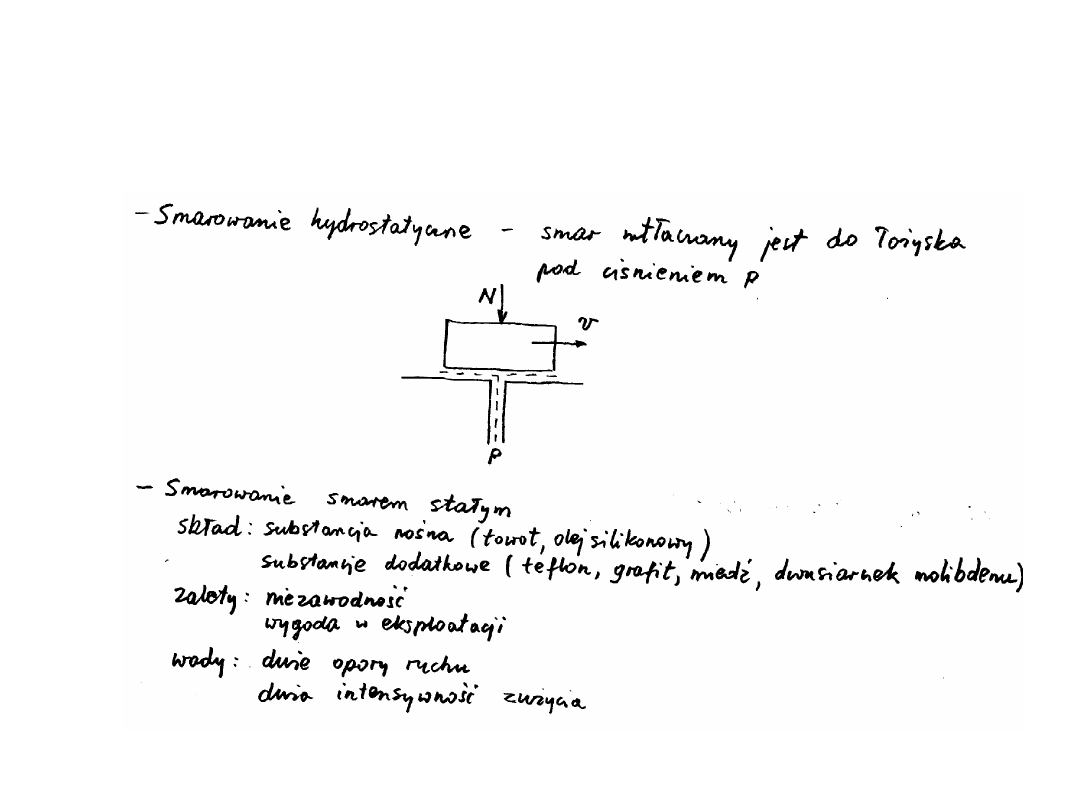 - Smarowanie hydrostatyczne - smar wtłaczany jest do łożyska
pod ciśnieniem p
N
v
P
- Smarowanie smarem stałym
skład: substancja nośna (towot, olej silikonowy)
substancje dodatkowe (teflon, grafit, miedź, dwusiarnek molibdenu)
zalety: niezawodność
wygoda w eksploatacji
wady: duże opory ruchu
duża intensywność zużycia